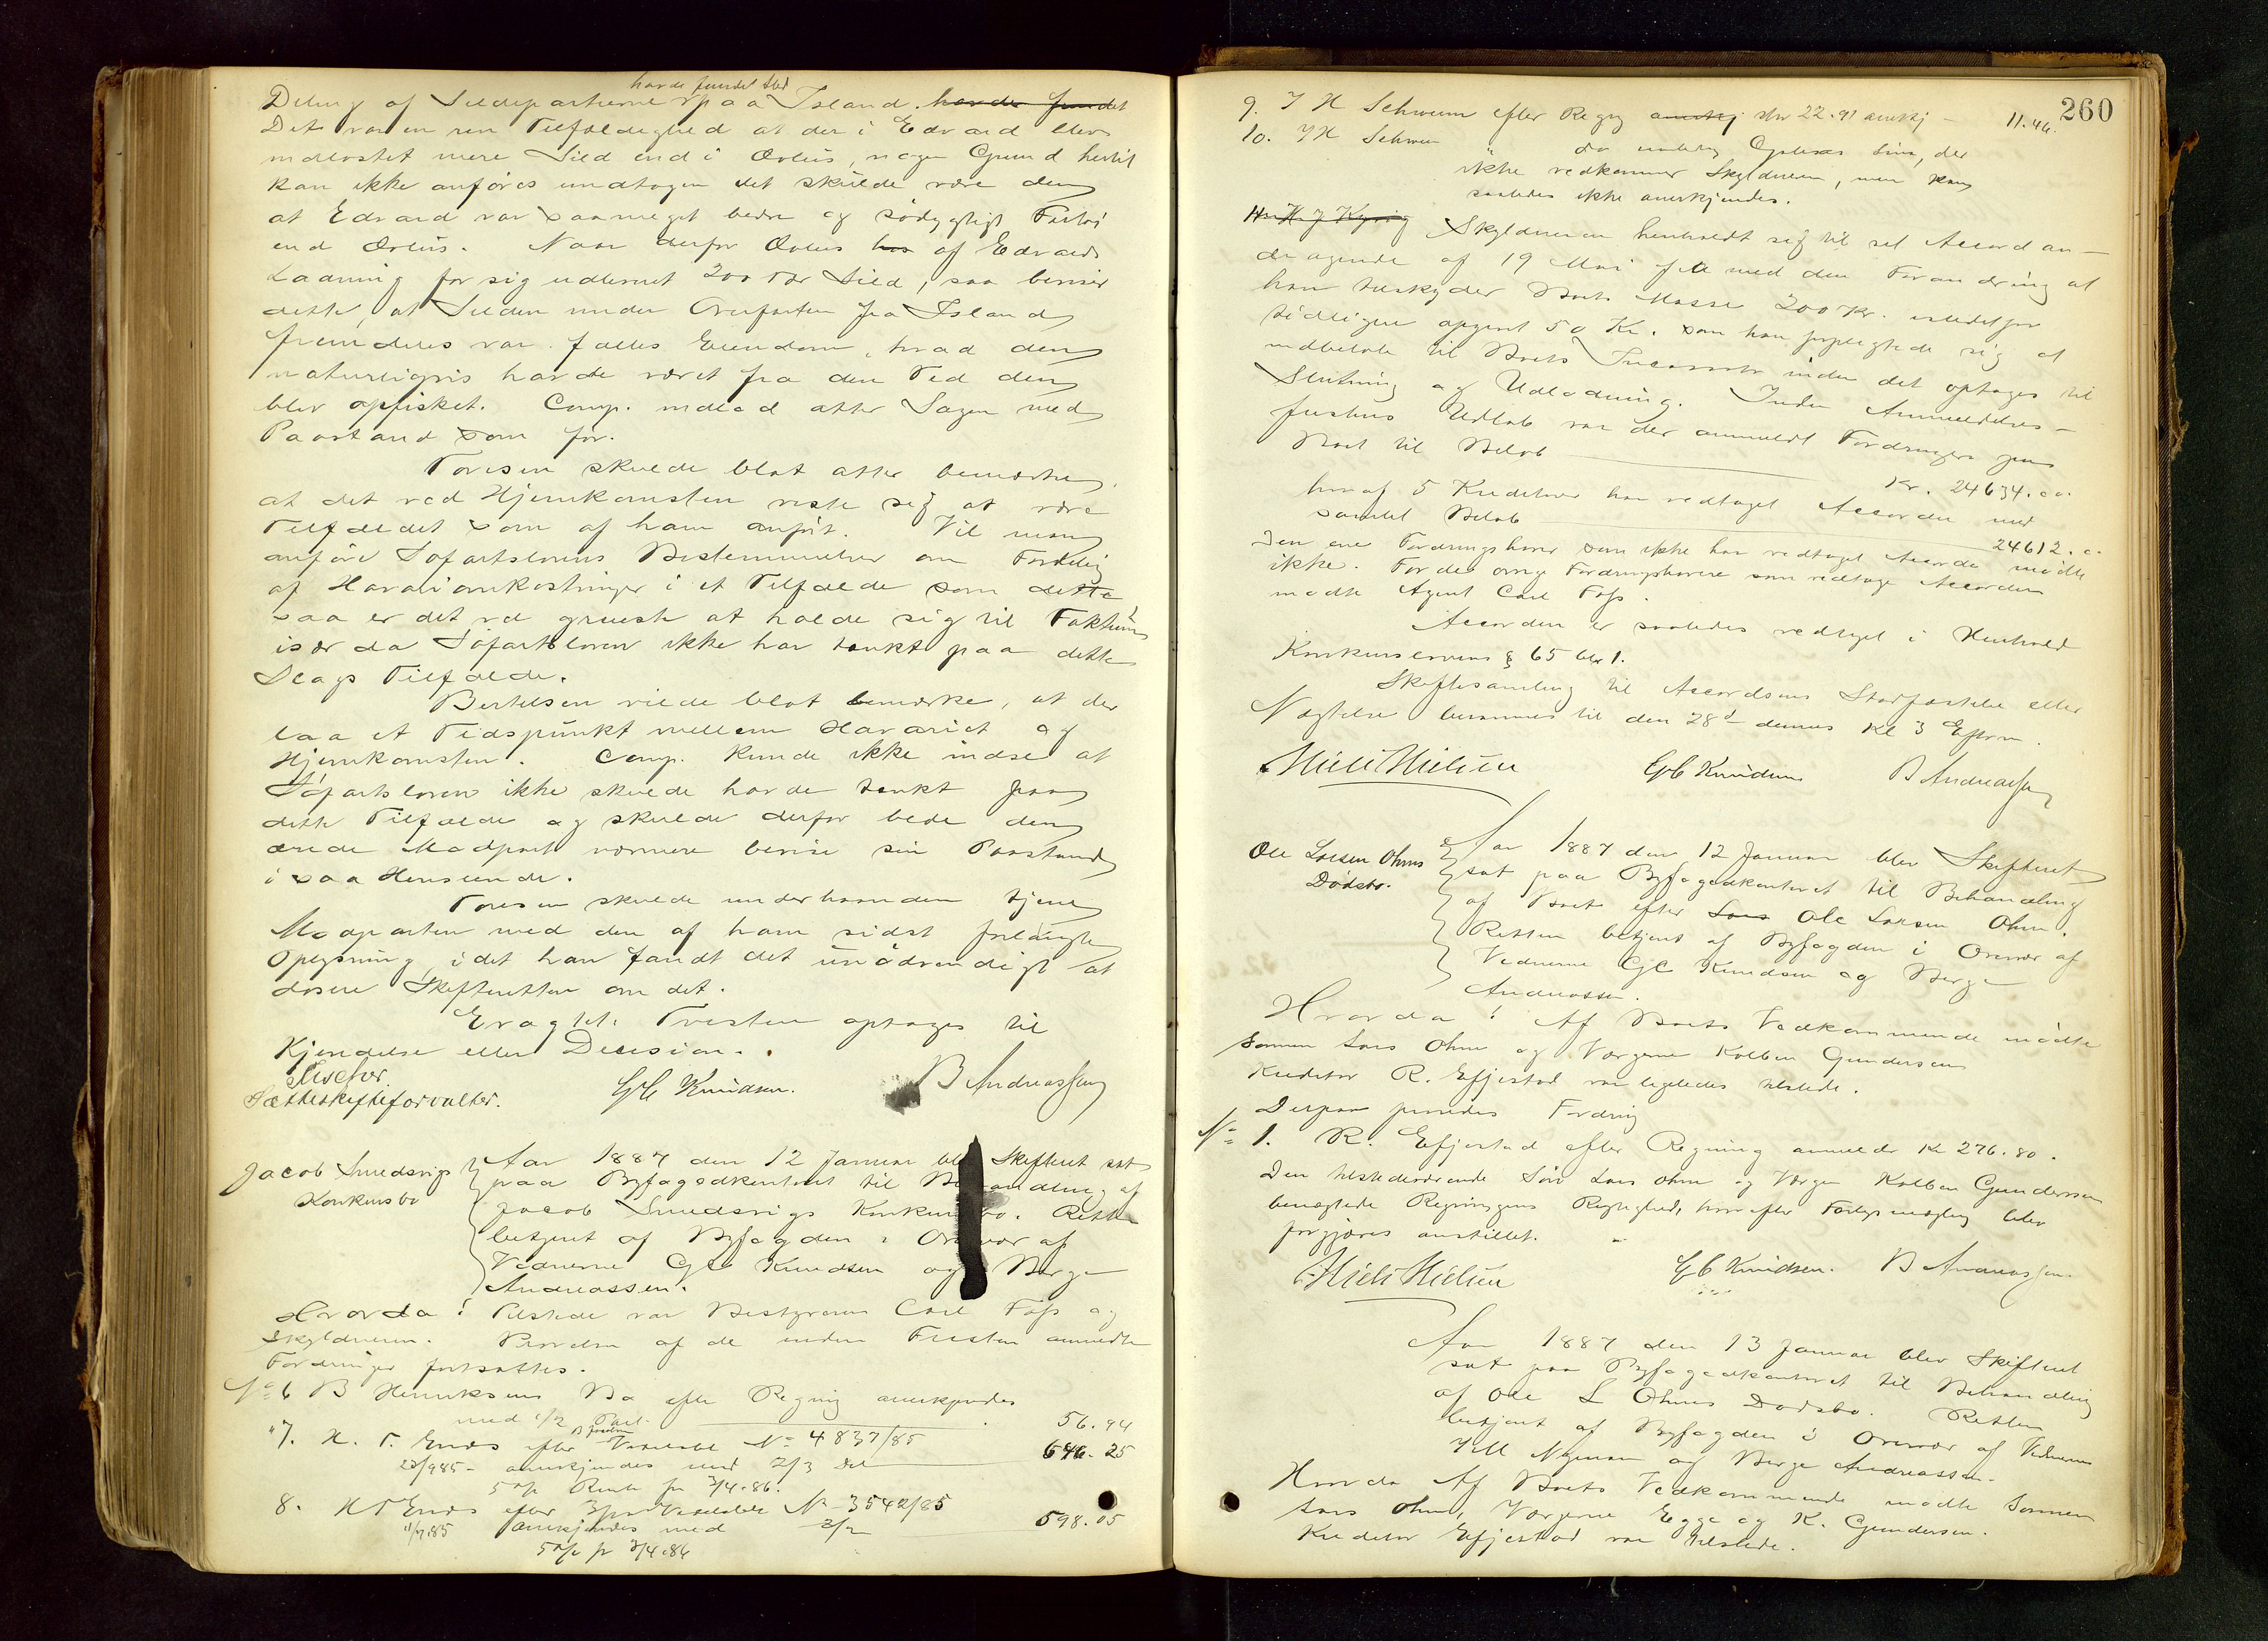 havde fundet Sted
Deling af Sildepartierne paa Island. havde fundet
Det var en ren Tilfældighed at der i Edvard blev
indlastet mere Sild end i Æolus, nogen Grund hertil
kan ikke anføres undtagen det skulde være den
at Edvard var saameget bedre og södygtigt Fartöi
end Æolus. Naar derfor Æolus har af Edvards
Ladning for sig udtaget 200 Tdr Sild, saa beviser
dette, at Silden under Overfarten fra Island
fremdeles var fælles Eiendom, hvad den
naturligvis havde været fra den Tid den
blev opfisket. Comp. indlod atter Sagen med
Paastand som för.
Toresen skulde blot atter bemærke,
at det ved Hjemkomsten viste sig at være
Tilfældet som af ham anfört. Vil man
anföre Söfartslovens Bestemmelser om Fordeling
af Havariomkostninger i et Tilfælde som dette
saa er det vel greiest at holde sig til Faktum
især da Söfartsloven ikke har tænkt paa dette
Slags Tilfælde.
Bertelsen vilde blot bemærke, at der
laa et Tidspunkt mellem Havariet og
Hjemkomsten. Comp. kunde ikke indse at
Söfartsloven ikke skulde havde tænkt paa
dette Tilfælde og skulde derfor bede den
ærede Modpart nærmere bevise sin Paastand
i saa Henseende.
Toresen skulde underhaanden tjene
Modparten med den af ham sidst forlangte
Oplysning, idet han fandt det unödvendigt at
docere Skifteretten om det.
Eragtet: Tvisten optages til
Kjendelse eller Decision.
Sætteskifteforvalter.
GC Knudsen. B Andreassen
Jacob Smedsvigs
Konkursbo
Aar 1887 den 12 Januar blev Skifteret sat
paa Byfogedkontoret til Behandling af
Jacob Smedsvigs Konkursbo. Retten
betjent af Byfogden i Overvær af
Vidnerne GC Knudsen og Berge
Andreassen.
Hvorda! Tilstede var Bestyreren Carl Foss og
Skyldneren. Prövelsen af de inden Fristen anmeldte
Fordringer fortsattes.
No 6 B Henriksens Bo efter Regning anerkjendes
med 1/2 Part 56.94
"7. H. T. Enes efter Vexelobl No 4837/85
anerkjendes med 2/3 Del 646.25
5 % Rente fra 3/4.86.
8. H T Enes efter Vexelobl No 3542/85
11/7.85 anerkjendes med 2/2 598.05
5 % fr 3/4.86
260
9. J H Schwenn efter Regng anerkj stor 22.91 anerkj - 11.46.
10. J H Schwenn
ikke vedkommer Skyldneren, men kan
saaledes ikke anerkjendes.
Skyldneren henholdt sig til sit Accordan-
dragende af 19 Mai f A med den Forandring at
han tilskyder Boets Masse 200 Kr. istedetfor
tidligere opgivet 50 Kr. som han forpligtede sig at
indbetale til Boets Incassator inden det optages til
Slutning og Udlodning. Inden Anmeldelses-
fristens Udlöb var der anmeldt Fordringer paa
Boet til Belöb Kr. 24634.00.
hvoraf 5 Kreditorer har vedtaget Accorden med
samlet Belöb 24612.00
Den ene Fordringshaver som ikke har vedtaget Accorden mödte
ikke. For de övrige Fordringshavere som vedtoge Accorden
mödte Agent Carl Foss.
Accorden er saaledes vedtaget i Henhold
Konkurslovens § 65 No 1.
Skiftesamling til Accordens Stadfæstelse eller
Nægtelse berammes til den 28d dennes Kl 3 Efterm.
Niels Nielsen GC Knudsen B Andreassen
Ole Larsen Ohms
Dödsbo.
Aar 1887 den 12 Januar blev Skifteret
sat paa Byfogedkontoret til Behandling
af Boet efter Lars Ole Larsen Ohm.
Retten betjent af Byfogden i Overvær af
Vidnerne GC Knudsen og Berge
Andreassen.
Hvorda! Af Boets Vedkommende mödte
Sönnen Lars Ohm og Værgerne Kolben Gundersen
Kreditor R. Efjestad var ligeledes tilstede.
Derpaa prövedes Fordring
No 1. R. Efjestad efter Regning anmeldt Kr 276.80.
Den tilstedeværende Sön Lars Ohm og Værge Kolben Gundersen
benægtede Regningens Rigtighed, hvorefter Forligsmægling blev
forgjæves anstillet.
Niels Nielsen GC Knudsen. B Andreassen.
Aar 1887 den 13 Januar blev Skifteret
sat paa Byfogedkontoret til Behandling
af Ole L Ohms Dödsbo. Retten
betjent af Byfogden i Overvær af Vidnerne
Nyman og Berge Andreassen.
Hvorda Af Boets Vedkommende mödte Sönnen
Lars Ohm, Værgerne Egge og K. Gundersen.
Kreditor Efjestad var tilstede.